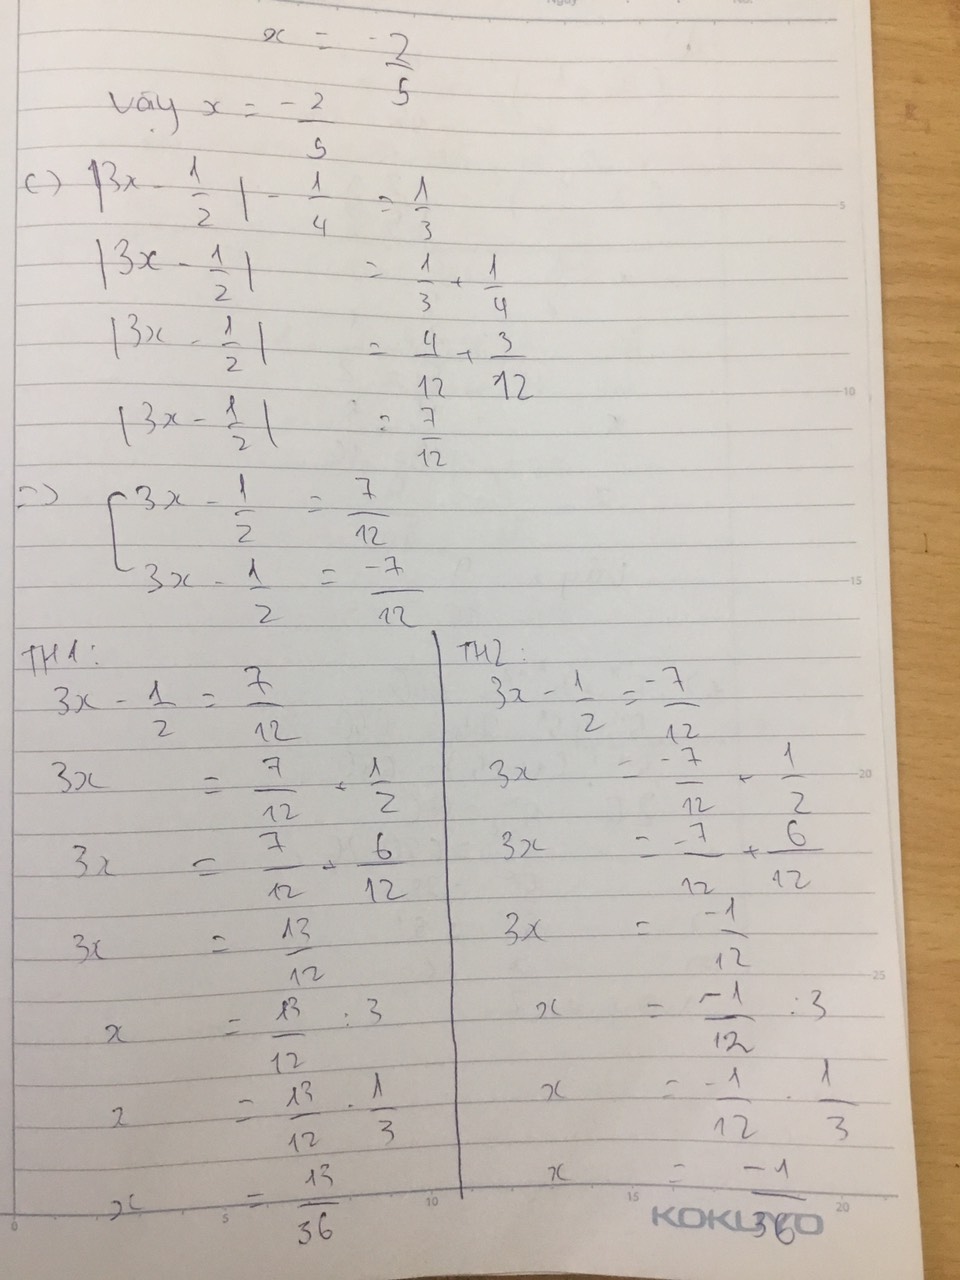 x = -2/5
Vậy x = -2/5
c) |3x - 1/2| - 1/4 = 1/3
|3x - 1/2| = 1/3 + 1/4
|3x - 1/2| = 4/12 + 3/12
|3x - 1/2| = 7/12
=> [ 3x - 1/2 = 7/12
3x - 1/2 = -7/12
TH1:
3x - 1/2 = 7/12
3x = 7/12 + 1/2
3x = 7/12 + 6/12
3x = 13/12
x = 13/12 : 3
x = 13/12 . 1/3
x = 13/36
TH2:
3x - 1/2 = -7/12
3x = -7/12 + 1/2
3x = -7/12 + 6/12
3x = -1/12
x = -1/12 : 3
x = -1/12 . 1/3
x = -1/36
5
10
15
20
25
0 5 10 15 20